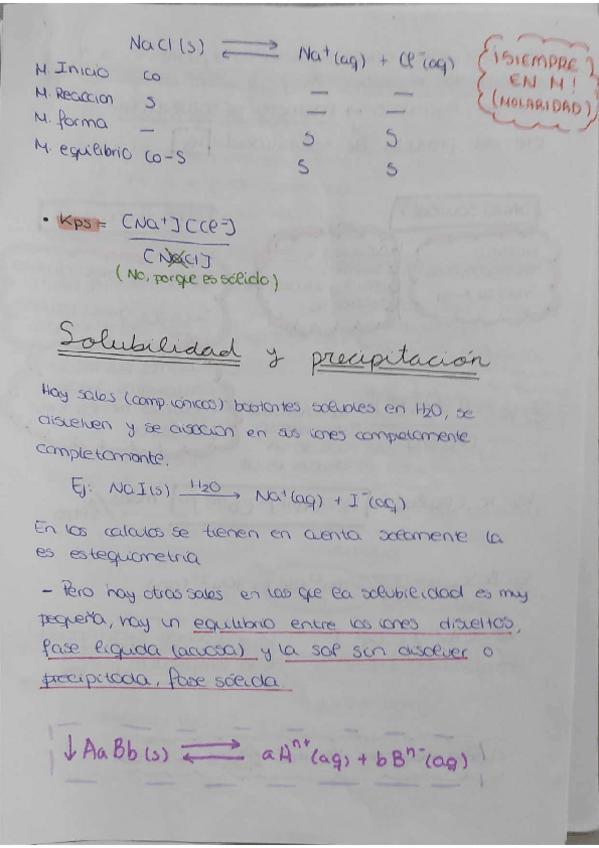 NaCl(s) ⇌ Na⁺(aq) + Cl⁻(aq)
¡SIEMPRE
EN M!
(MOLARIDAD)
M. Inicio co — —
M. Reaccion s — —
M. forma — s s
M. equilibrio co-s s s
• Kps = [Na⁺][Cl⁻]
[NaCl]
(No, porque es sólido)
Solubilidad y precipitación
Hay sales (comp. iónicos) bastantes solubles en H2O, se
disuelven y se disocian en sus iones completamente
completamente.
Ej: NaI(s) —H2O→ Na⁺(aq) + I⁻(aq)
En los calculos se tienen en cuenta solamente la
es estequiometria
- Pero hay otras sales en las que la solubilidad es muy
pequeña, hay un equilibrio entre los iones disueltos,
fase liquida (acuosa) y la sal sin disolver o
precipitada, fase sólida.
↓AaBb(s) ⇌ aAⁿ⁺(aq) + bBⁿ⁻(aq)